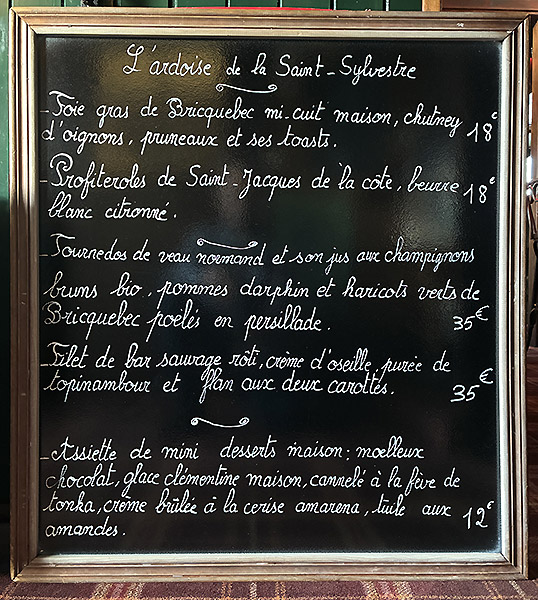 L'ardoise de la Saint-Sylvestre
- Foie gras de Bricquebec mi-cuit maison, chutney
d'oignons, pruneaux et ses toasts. 18€
- Profiteroles de Saint-Jacques de la côte, beurre 18€
blanc citronné.
- Tournedos de veau normand et son jus aux champignons
bruns bio, pommes darphin et haricots verts de
Bricquebec poelés en persillade. 35€
- Filet de bar sauvage rôti, crème d'oseille, purée de
topinambour et flan aux deux carottes. 35€
- Assiette de mini desserts maison: moelleux
chocolat, glace clémentine maison, cannelé à la fève de
tonka, crème brûlée à la cerise amarena, tuile aux 12€
amandes.